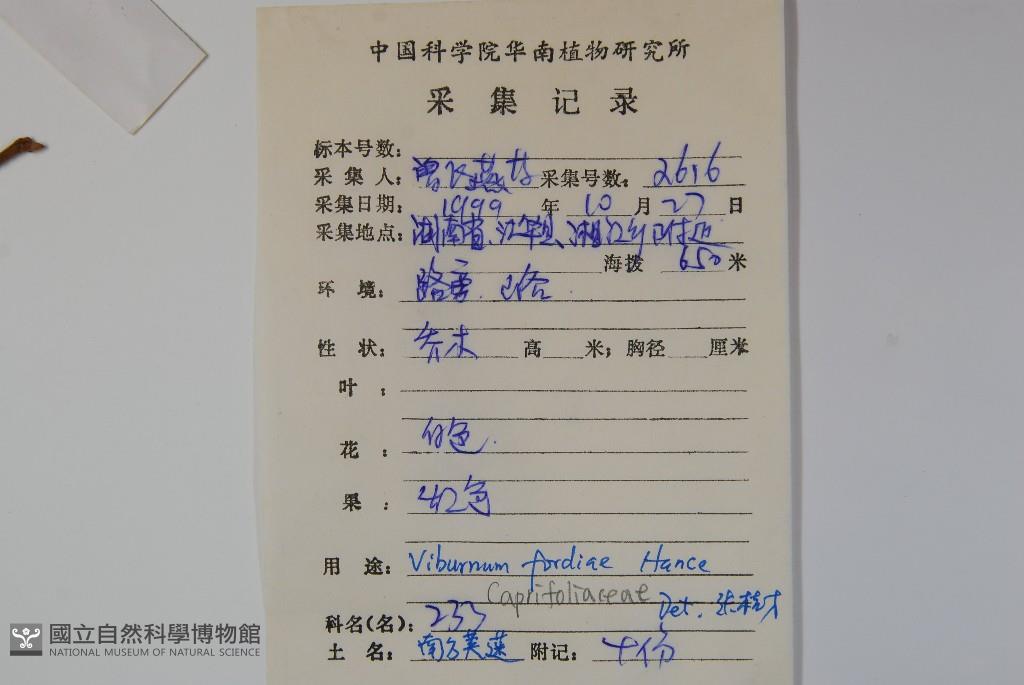 中国科学院华南植物研究所
采集记录
标本号数:
采集人: 采集号数: 2616
采集日期: 1999年10月27日
采集地点: 湖南省、江华县、湘江乡附近
海拨 650米
环境: 路旁.
性状: 乔木 高 米; 胸径 厘米
叶:
花: 白色.
果: 红色
用途: Viburnum fordiae Hance
Caprifoliaceae Det.
科名(名): 233
土名: 南方荚蒾 附记: 十份
國立自然科學博物館
NATIONAL MUSEUM OF NATURAL SCIENCE